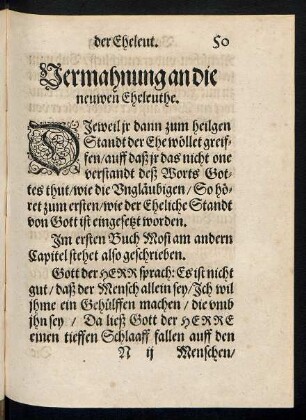 der Eheleut. 50
Vermahnung an die
neuwen Eheleuthe.
DJeweil jr dann zum heilgen
Standt der Ehe wöllet greif-
fen/ auff daß jr das nicht one
verstandt deß Worts Got-
tes thut/ wie die Vngläubigen/ So hö-
ret zum ersten/ wie der Eheliche Standt
von Gott ist eingesetzt worden.
Jm ersten Buch Mosi am andern
Capitel stehet also geschrieben.
Gott der HERR sprach: Es ist nicht
gut/ daß der Mensch allein sey/ Jch wil
jhme ein Gehülffen machen/ die vmb
jhn sey/ Da ließ Gott der HERRE
einen tieffen Schlaaff fallen auff den
N ij Menschen/